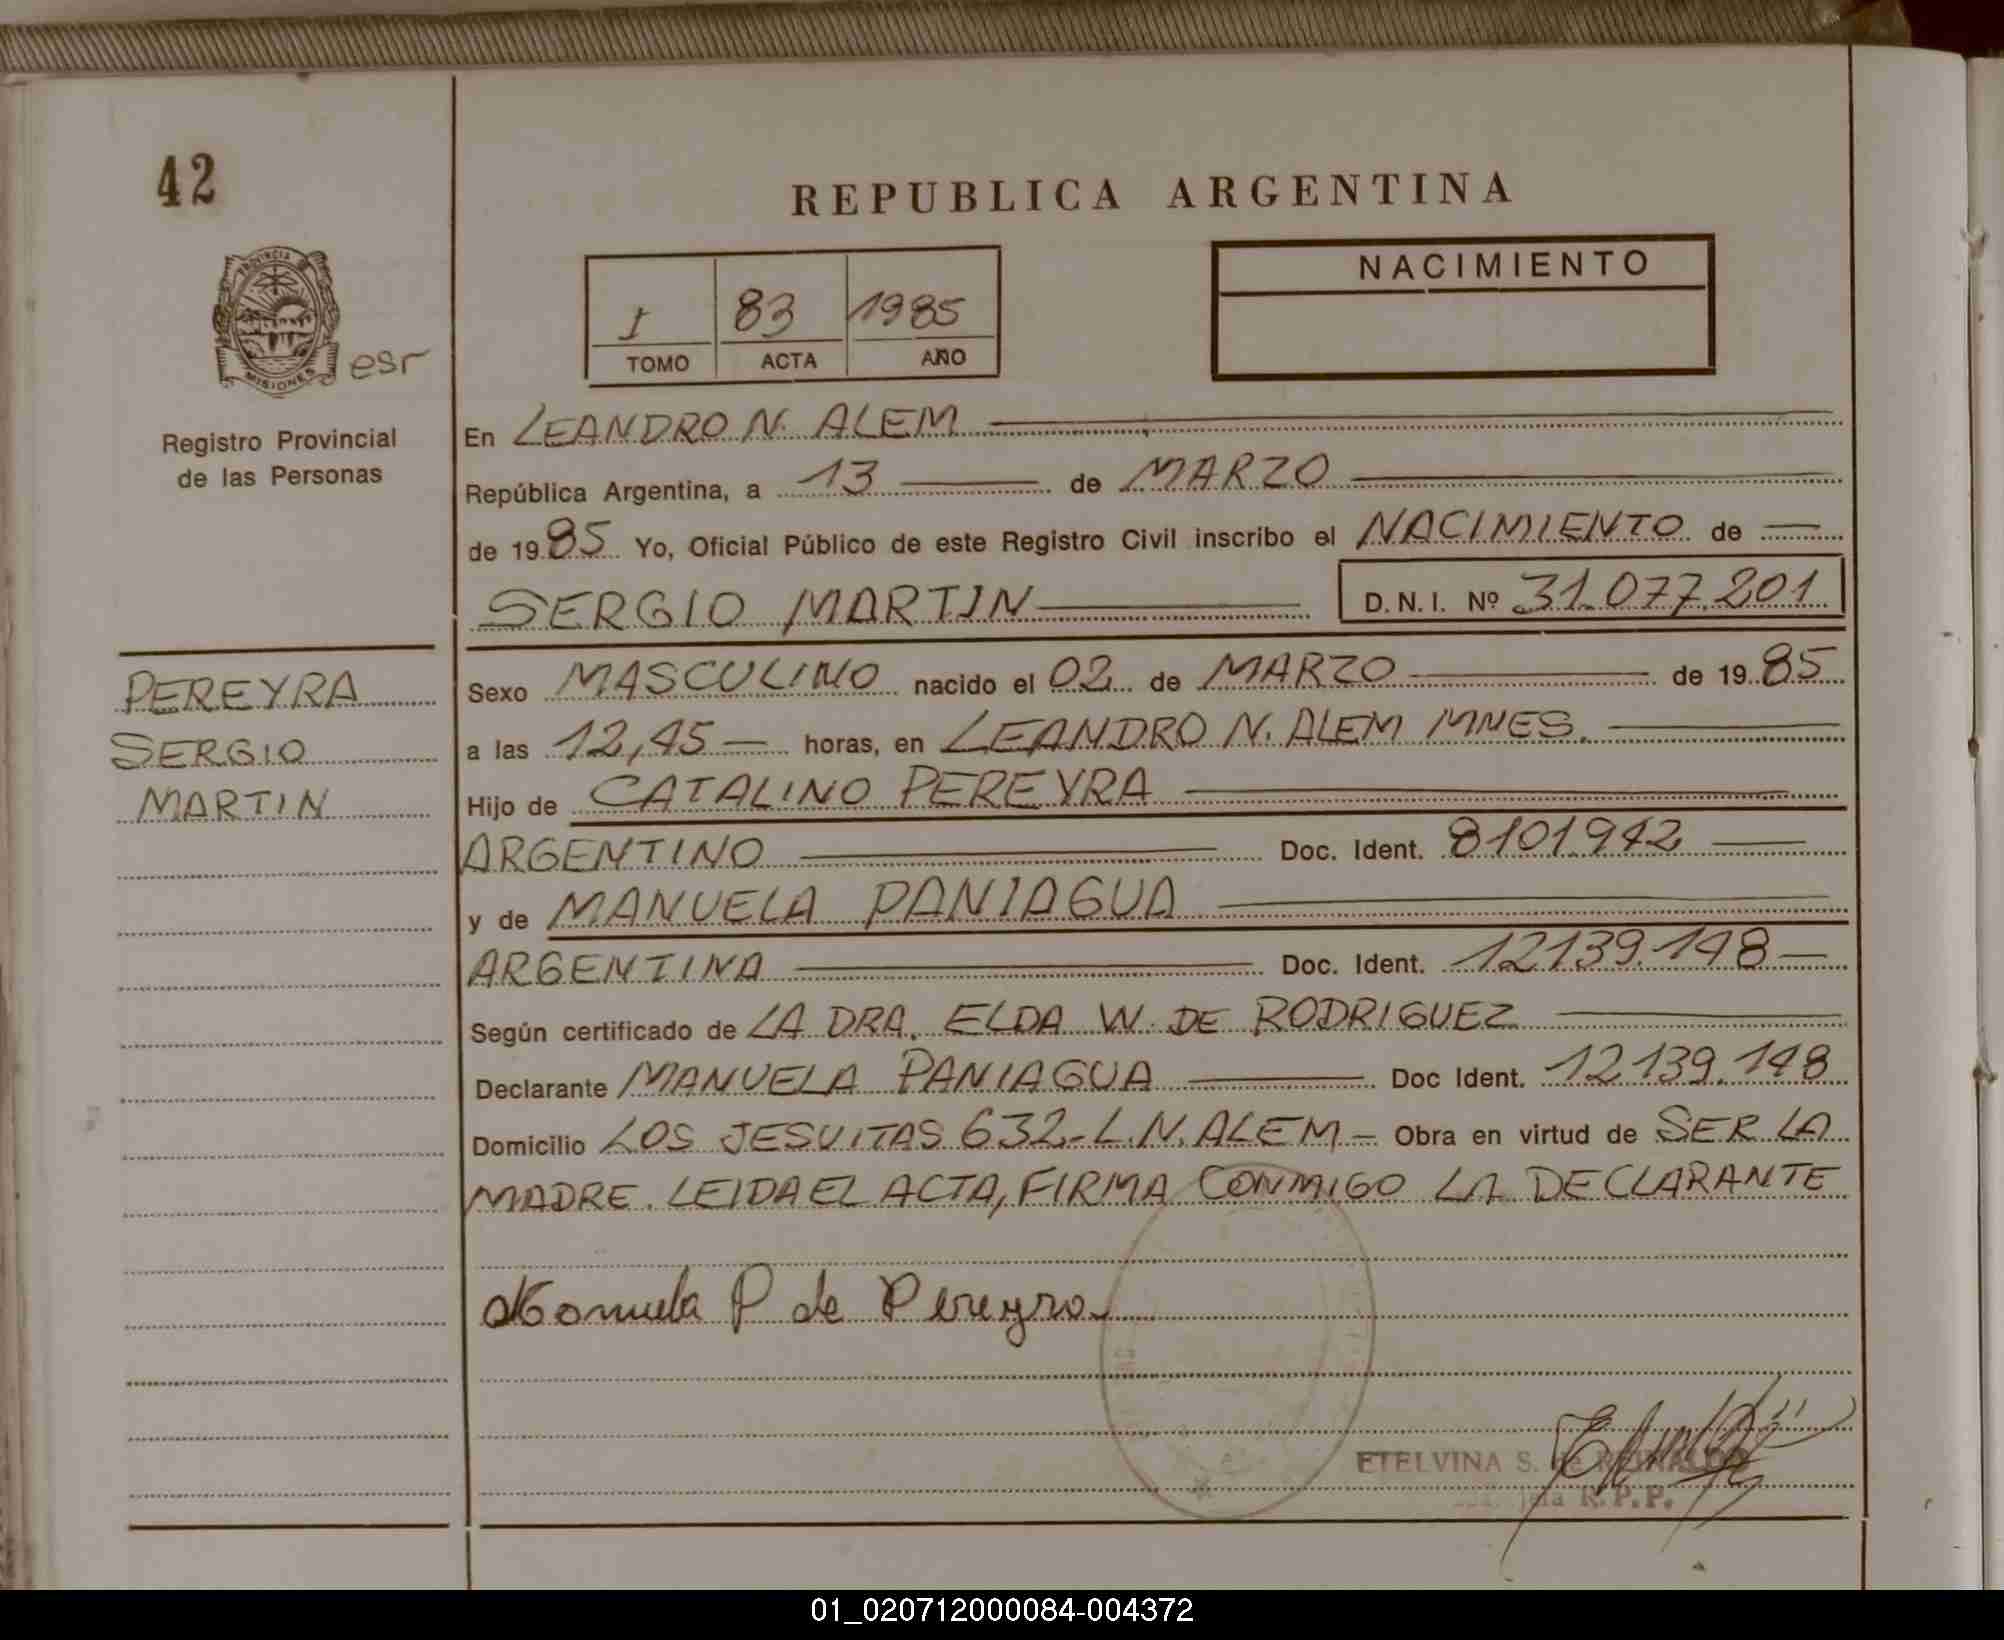 42
REPUBLICA ARGENTINA
PROVINCIA DE
MISIONES
esr
Registro Provincial
de las Personas
I 83 1985
TOMO ACTA AÑO
NACIMIENTO
En LEANDRO N. ALEM
República Argentina, a 13 de MARZO
de 1985 Yo, Oficial Público de este Registro Civil inscribo el NACIMIENTO de
SERGIO MARTIN D.N.I. Nº 31.077.201
PEREYRA
SERGIO
MARTIN
Sexo MASCULINO nacido el 02 de MARZO de 1985
a las 12,45 horas, en LEANDRO N. ALEM MNES.
Hijo de CATALINO PEREYRA
ARGENTINO Doc. Ident. 8101.942
y de MANUELA PANIAGUA
ARGENTINA Doc. Ident. 12139.148
Según certificado de LA DRA. ELDA W. DE RODRIGUEZ
Declarante MANUELA PANIAGUA Doc Ident. 12139.148
Domicilio LOS JESUITAS 632-L.N.ALEM- Obra en virtud de SER LA
MADRE. LEIDA EL ACTA, FIRMA CONMIGO LA DECLARANTE
Manuela P de Pereyra
ETELVINA S. de REINALDO
Jefa R.P.P.
01_020712000084-004372